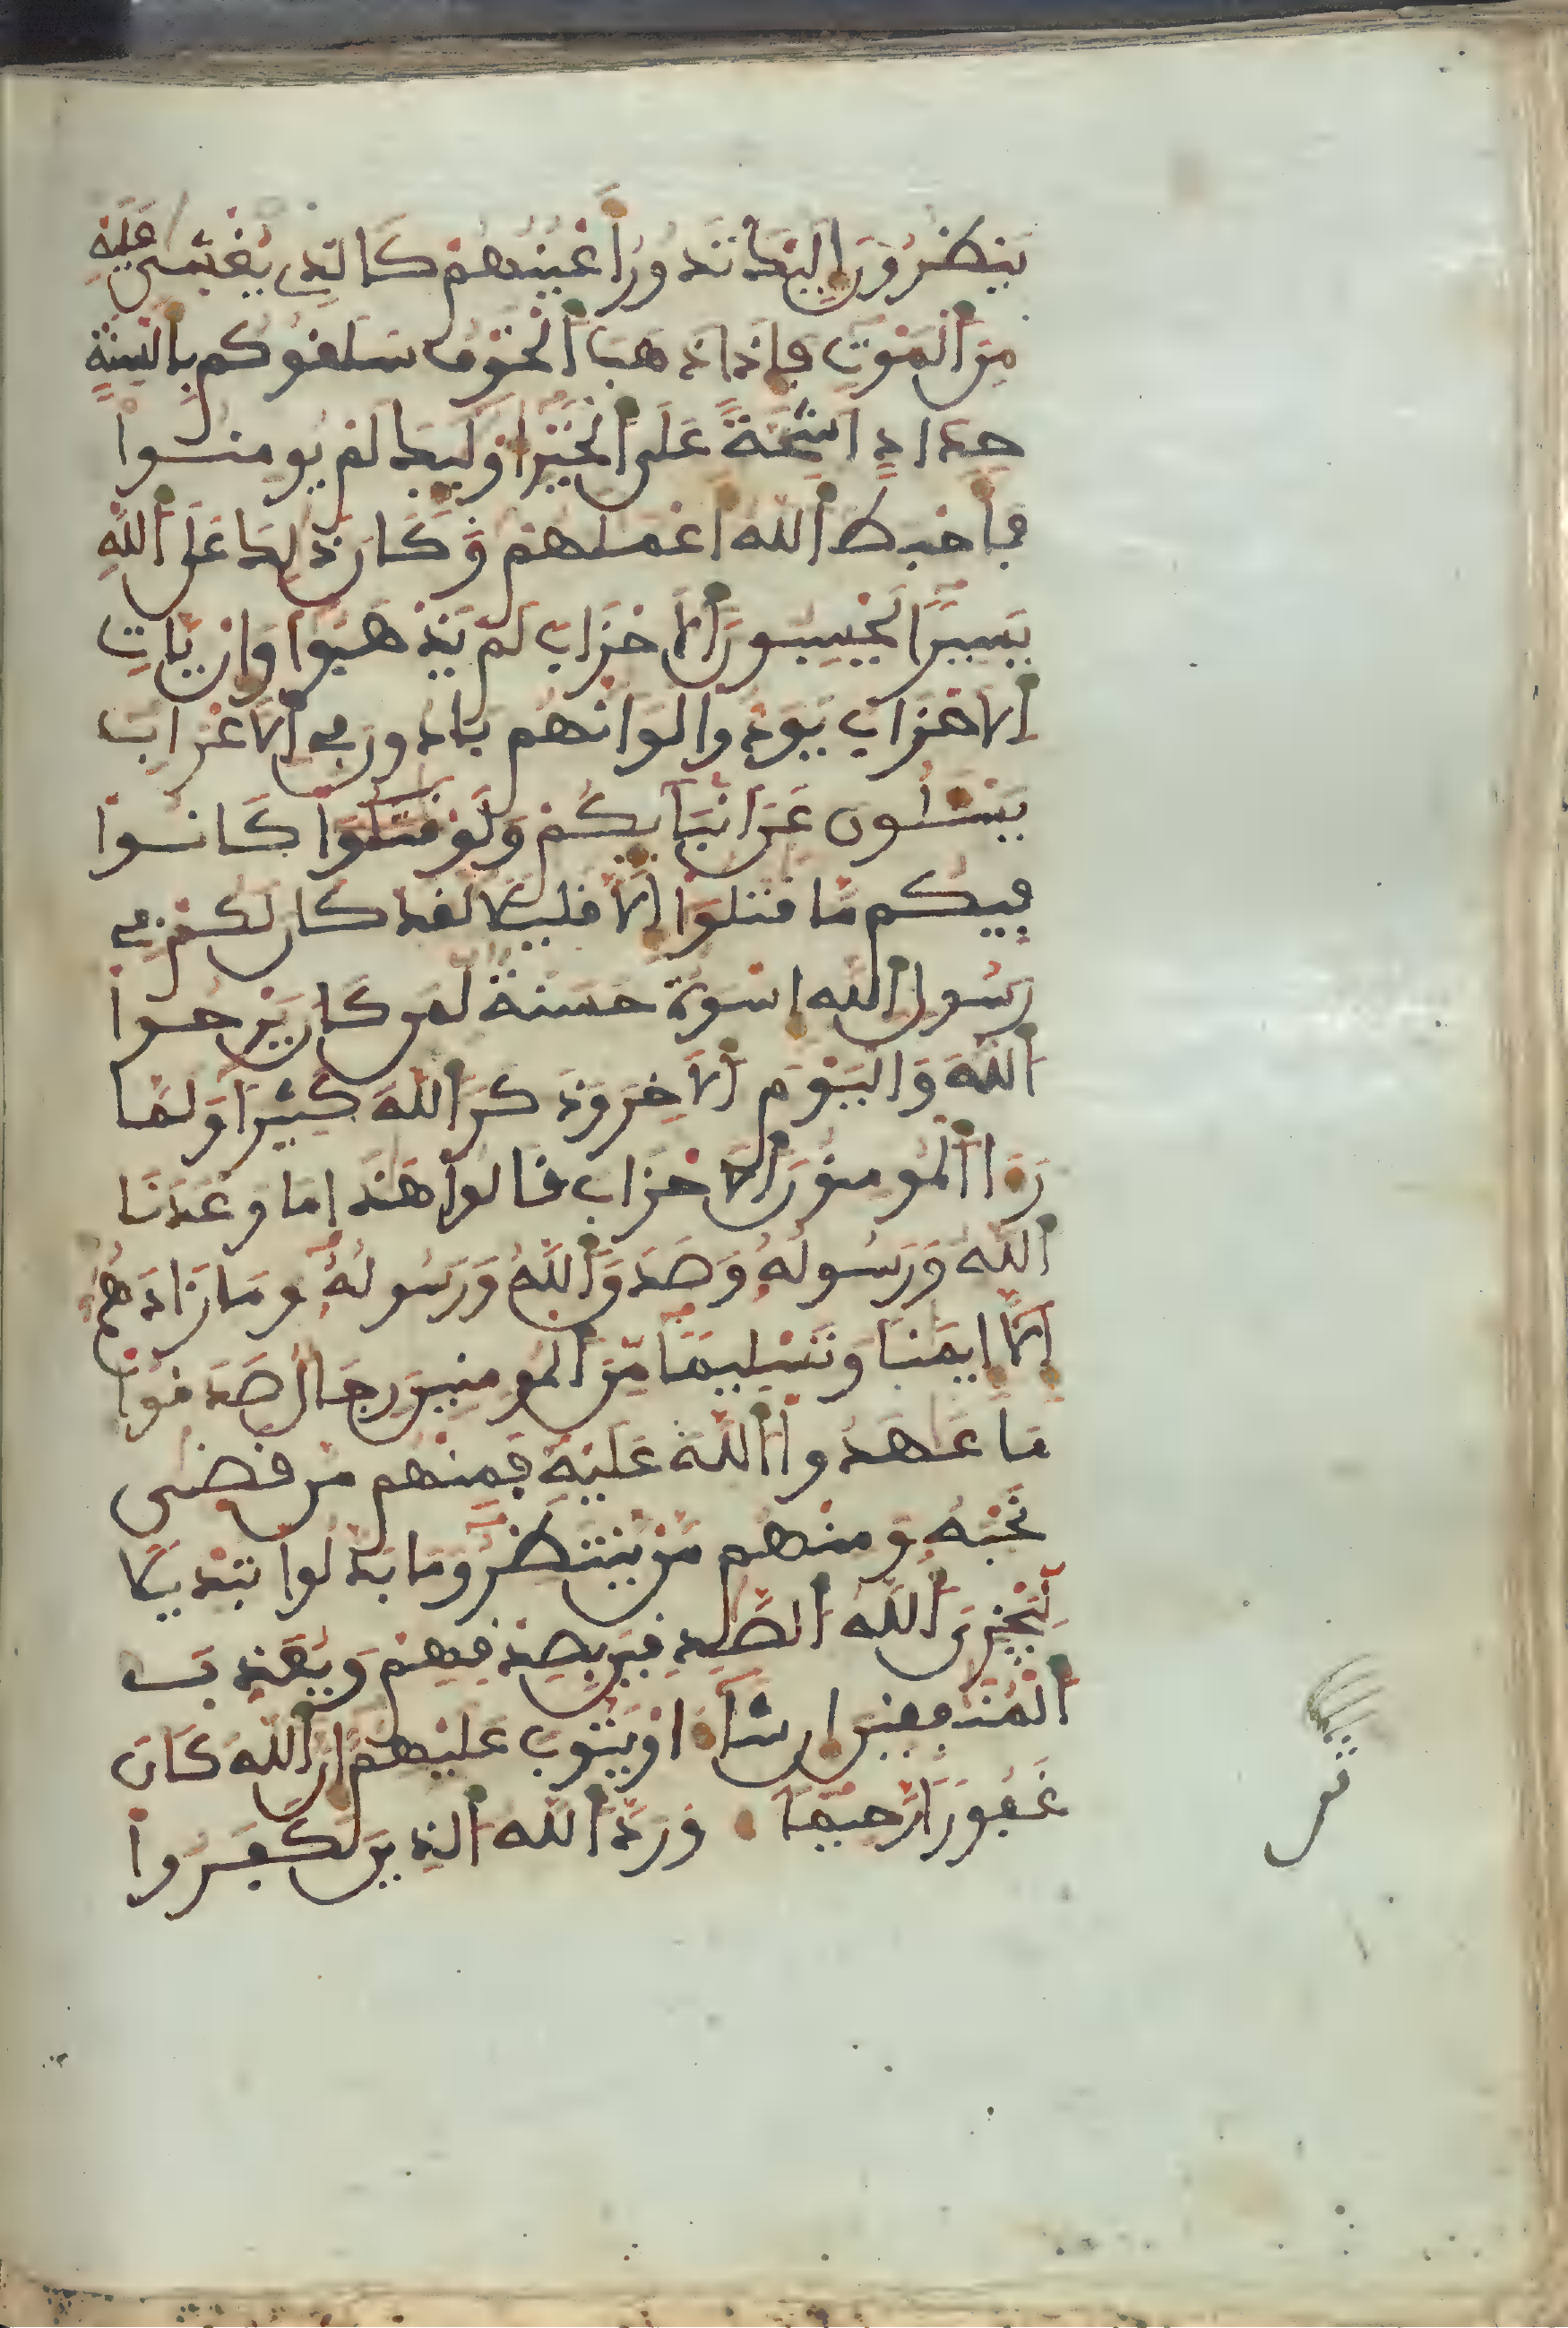 يَنظُرُونَ إِلَيْكَ تَدُورُ أَعْيُنُهُمْ كَالذِے يُغْشَىٰ عَلَيْهِ
مِنَ اَلْمَوْتِ فَإِذَا ذَهَبَ اَلْخَوْفُ سَلَقُوكُم بِأَلْسِنَةٍ
حِدَادٍ اَشِحَّةً عَلَى اَلْخَيْرِ أُوْلَٰئِكَ لَمْ يُومِنُوا
فَأَحْبَطَ اَللَّهُ أَعْمَٰلَهُمْ وَكَانَ ذَٰلِكَ عَلَى اَللَّهِ
يَسِيرًا يَحْسِبُونَ اَلَاحْزَابَ لَمْ يَذْهَبُوا وَإِنْ يَّاتِ
اِلَاحْزَابُ يَوَدُّوا لَوَ اَنَّهُم بَادُونَ فِے اِلَاعْرَابِ
يَسْـَٔلُونَ عَنَ اَنۢبَآئِكُمْ وَلَوْ قَٰتَلُوا كَانُوا
فِيكُم مَّا قَٰتَلُوا إِلَّا قَلِيلًا لَّقَدْ كَانَ لَكُمْ فِے
رَسُولِ اِللَّهِ إِسْوَةٌ حَسَنَةٌ لِّمَن كَانَ يَرْجُوا
اُللَّهَ وَالْيَوْمَ اَلَاخِرَ وَذَكَرَ اَللَّهَ كَثِيرًا وَلَمَّا
رَءَا اَلْمُومِنُونَ اَلَاحْزَابَ قَالُوا هَٰذَا مَا وَعَدَنَا
اَللَّهُ وَرَسُولُهُ وَصَدَقَ اَللَّهُ وَرَسُولُهُ وَمَا زَادَهُمُ
إِلَّا إِيمَٰنًا وَتَسْلِيمًا مِّنَ اَلْمُومِنِينَ رِجَالٌ صَدَقُوا
مَا عَٰهَدُوا اُللَّهَ عَلَيْهِ فَمِنْهُم مَّن قَضَىٰ
نَحْبَهُ وَمِنْهُم مَّنْ يَّنتَظِرُ وَمَا بَدَّلُوا تَبْدِيلًا
لِّيَجْزِيَ اَللَّهُ اُلصَّٰدِقِينَ بِصِدْقِهِمْ وَيُعَذِّبَ
اَلْمُنَٰفِقِينَ إِن شَآءَ اَوْ يَتُوبَ عَلَيْهِمُ إِنَّ اَللَّهَ كَانَ
غَفُورًا رَّحِيمًا وَرَدَّ اَللَّهُ اُلذِينَ كَفَرُوا